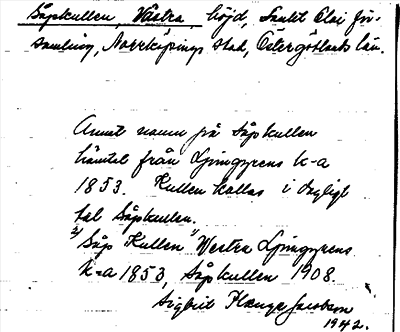 Såpkullen, Västra, höjd, Sankt Olai för-
samling, Norrköpings stad, Östergötlands län.
Annat namn på Såpkullen
hämtat från Ljungyrens k-a
1853. Kullen kallas i dagligt
tal Såpkullen.
"Såp Kullen" Westra Ljungyrens
k-a 1853, Såpkullen 1908.
Sigbrit Plænge Jacobson
1942.